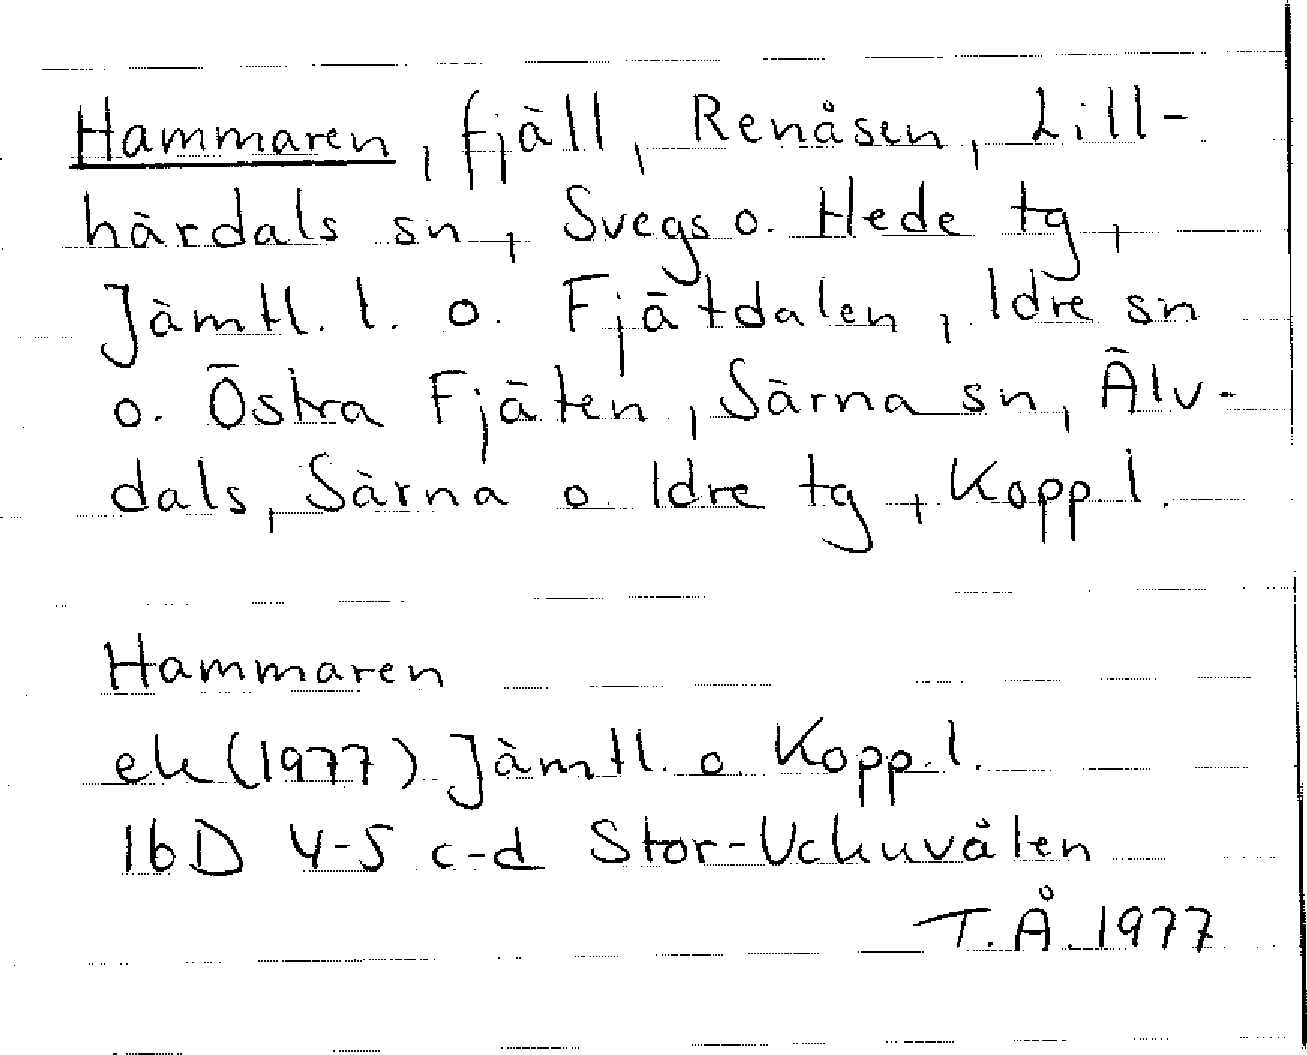 Hammaren, fjäll, Renåsen, Lill-
härdals sn, Svegs o. Hede tg,
Jämtl. l. o. Fjätdalen, Idre sn
o. Östra Fjäten, Särna sn, Älv-
dals, Särna o Idre tg, Kopp l.
Hammaren
ek (1977) Jämtl. o. Kopp. l.
16D 4-5 c-d Stor-Uckuvålen
T.Å. 1977